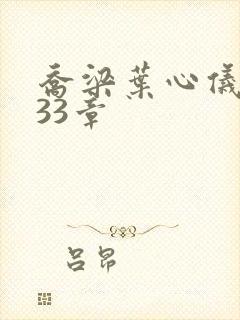 乔梁葉心儀
33章
吕昂